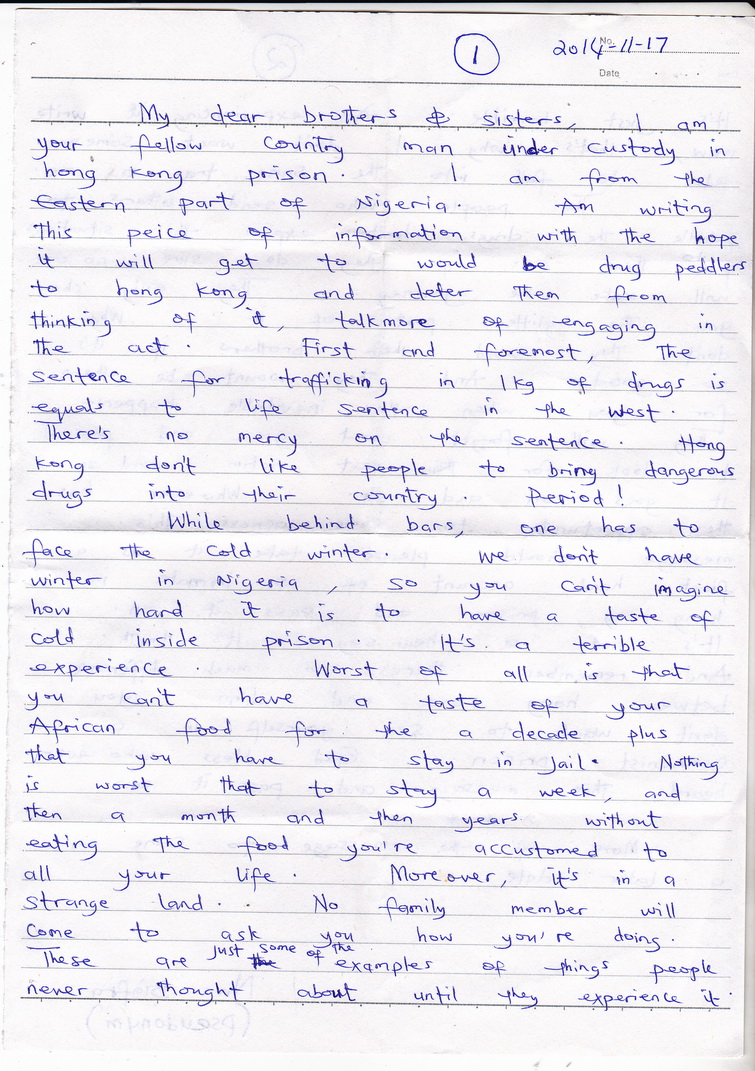 1
No.
2014-11-17
Date
My dear brothers & sisters, I am
your fellow country man under custody in
hong kong prison. I am from the
Eastern part of Nigeria. Am writing
This peice of information with the hope
it will get to would be drug peddlers
to hong kong and deter them from
thinking of it, talkmore of engaging in
the act. First and foremost, The
sentence for trafficking in 1kg of drugs is
equals to life sentence in the West.
There's no mercy on the sentence. Hong
kong don't like people to bring dangerous
drugs into their country Period!
While behind bars, one has to
face the cold winter. we don't have
winter in Nigeria, so you can't imagine
how hard it is to have a taste of
cold inside prison. It's a terrible
experience. Worst of all is that
you can't have a taste of your
African food for the a decade plus
that you have to stay in Jail. Nothing
is worst that to stay a week, and
then a month and then years without
eating the food you're accustomed to
all your life. Moreover, it's in a
strange land. No family member will
come to ask you how you're doing.
These are just some of the examples of things people
never thought about until they experience it.